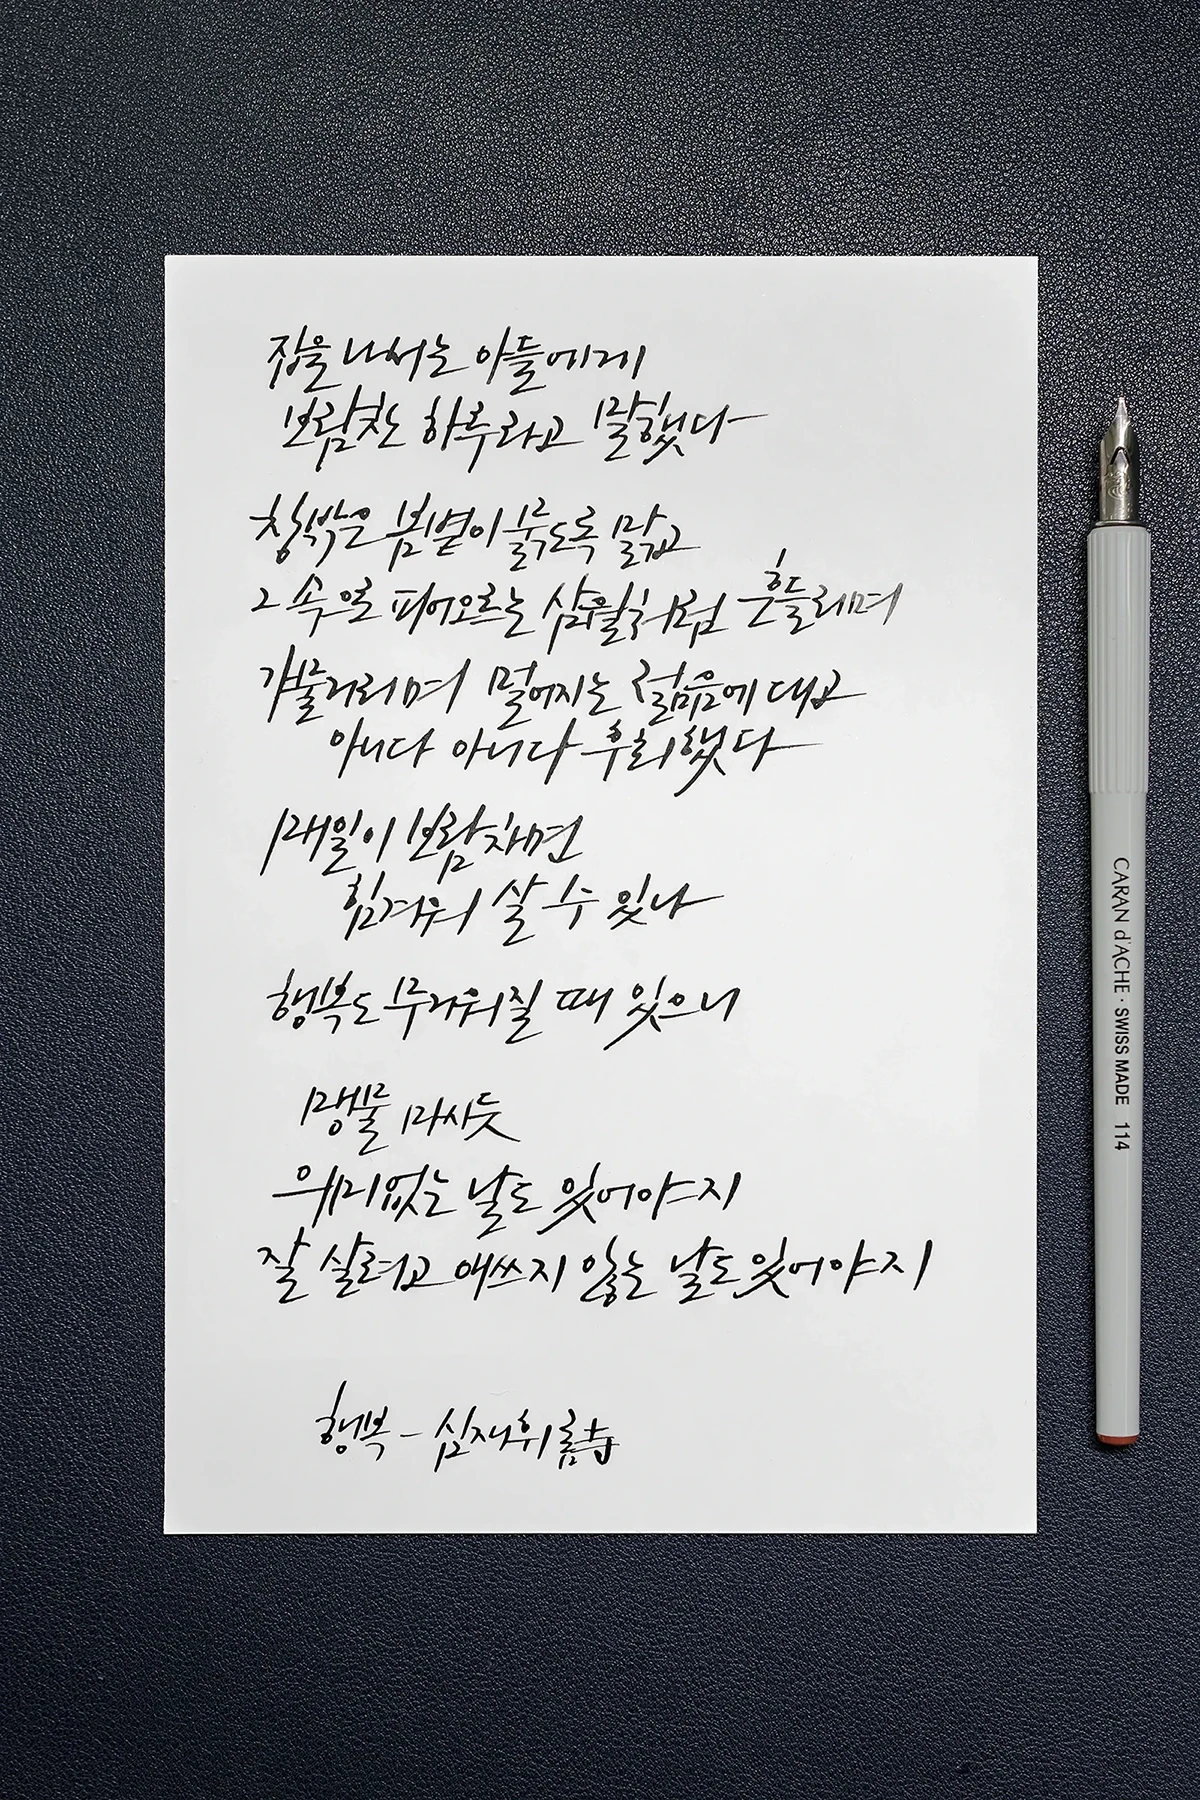 집을 나서는 아들에게
보람찬 하루라고 말했다
창밖은 봄볕이 묽도록 맑고
그 속으로 피어오르는 삼월처럼 흔들리며
가물거리며 멀어지는 젊음에 대고
아니다 아니다 후회했다
매일이 보람차면
힘겨워 살 수 있나
행복도 무거워질 때 있으니
맹물 마시듯
의미없는 날도 있어야지
잘 살려고 애쓰지 않는 날도 있어야지
행복 - 심재휘
CARAN d'ACHE · SWISS MADE 114